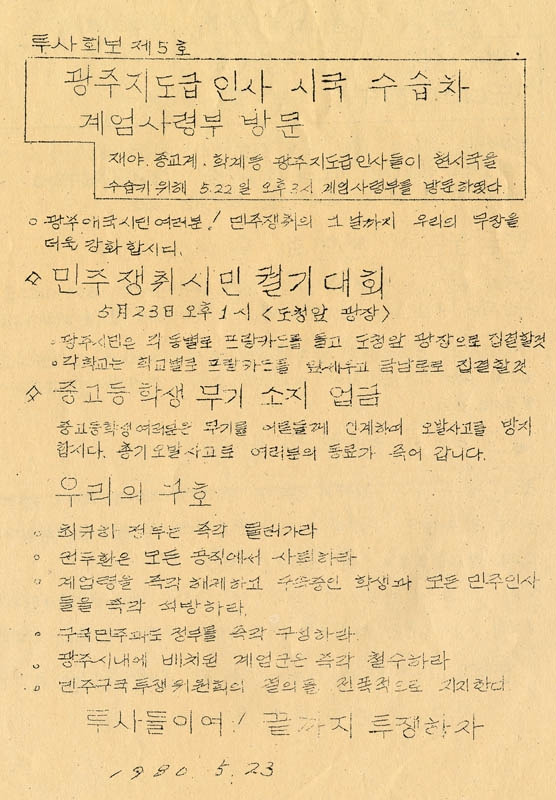 투사회보 제5호
광주지도급인사 시국 수습차
계엄사령부 방문
재야. 종교계. 학계등 광주지도급인사들이 현시국을
수습키 위해 5.22일 오후3시 계엄사령부를 방문하였다
○ 광주애국시민 여러분! 민주쟁취의 그날까지 우리의 무장을
더욱 강화 합시다.
민주쟁취시민 궐기대회
5月23日 오후1시 <도청앞 광장>
○ 광주시민은 각 동별로 프랑카드를 들고 도청앞 광장으로 집결할것
○ 각학교는 학교별로 프랑카드를 앞세우고 금남로로 집결할것
중고등학생 무기 소지 엄금
중고등학생 여러분은 무기를 어른들께 인계하여 오발사고를 방지
합시다. 총기오발사고로 여러분의 동료가 죽어 갑니다.
우리의 구호
○ 최규하 정부는 즉각 물러가라
○ 전두환은 모든 공직에서 사퇴하라
○ 계엄령을 즉각 해제하고 구속중인 학생과 모든 민주인사
들을 즉각 석방하라.
○ 구국민주과도 정부를 즉각 구성하라.
○ 광주시내에 배치된 계엄군은 즉각 철수하라
○ 민주구국투쟁위원회의 결의를 전폭적으로 지지한다
투사들이여! 끝까지 투쟁하자
1980. 5. 23